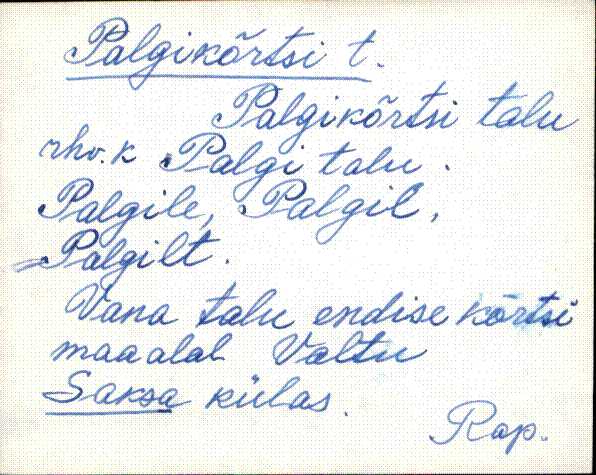 Palgikõrtsi t.
Palgikõrtsi talu
rhv. k Palgi talu.
Palgile, Palgil,
Palgilt.
Vana talu endise kõrtsi
maaalal Valtu
Saksa külas.
Rap.